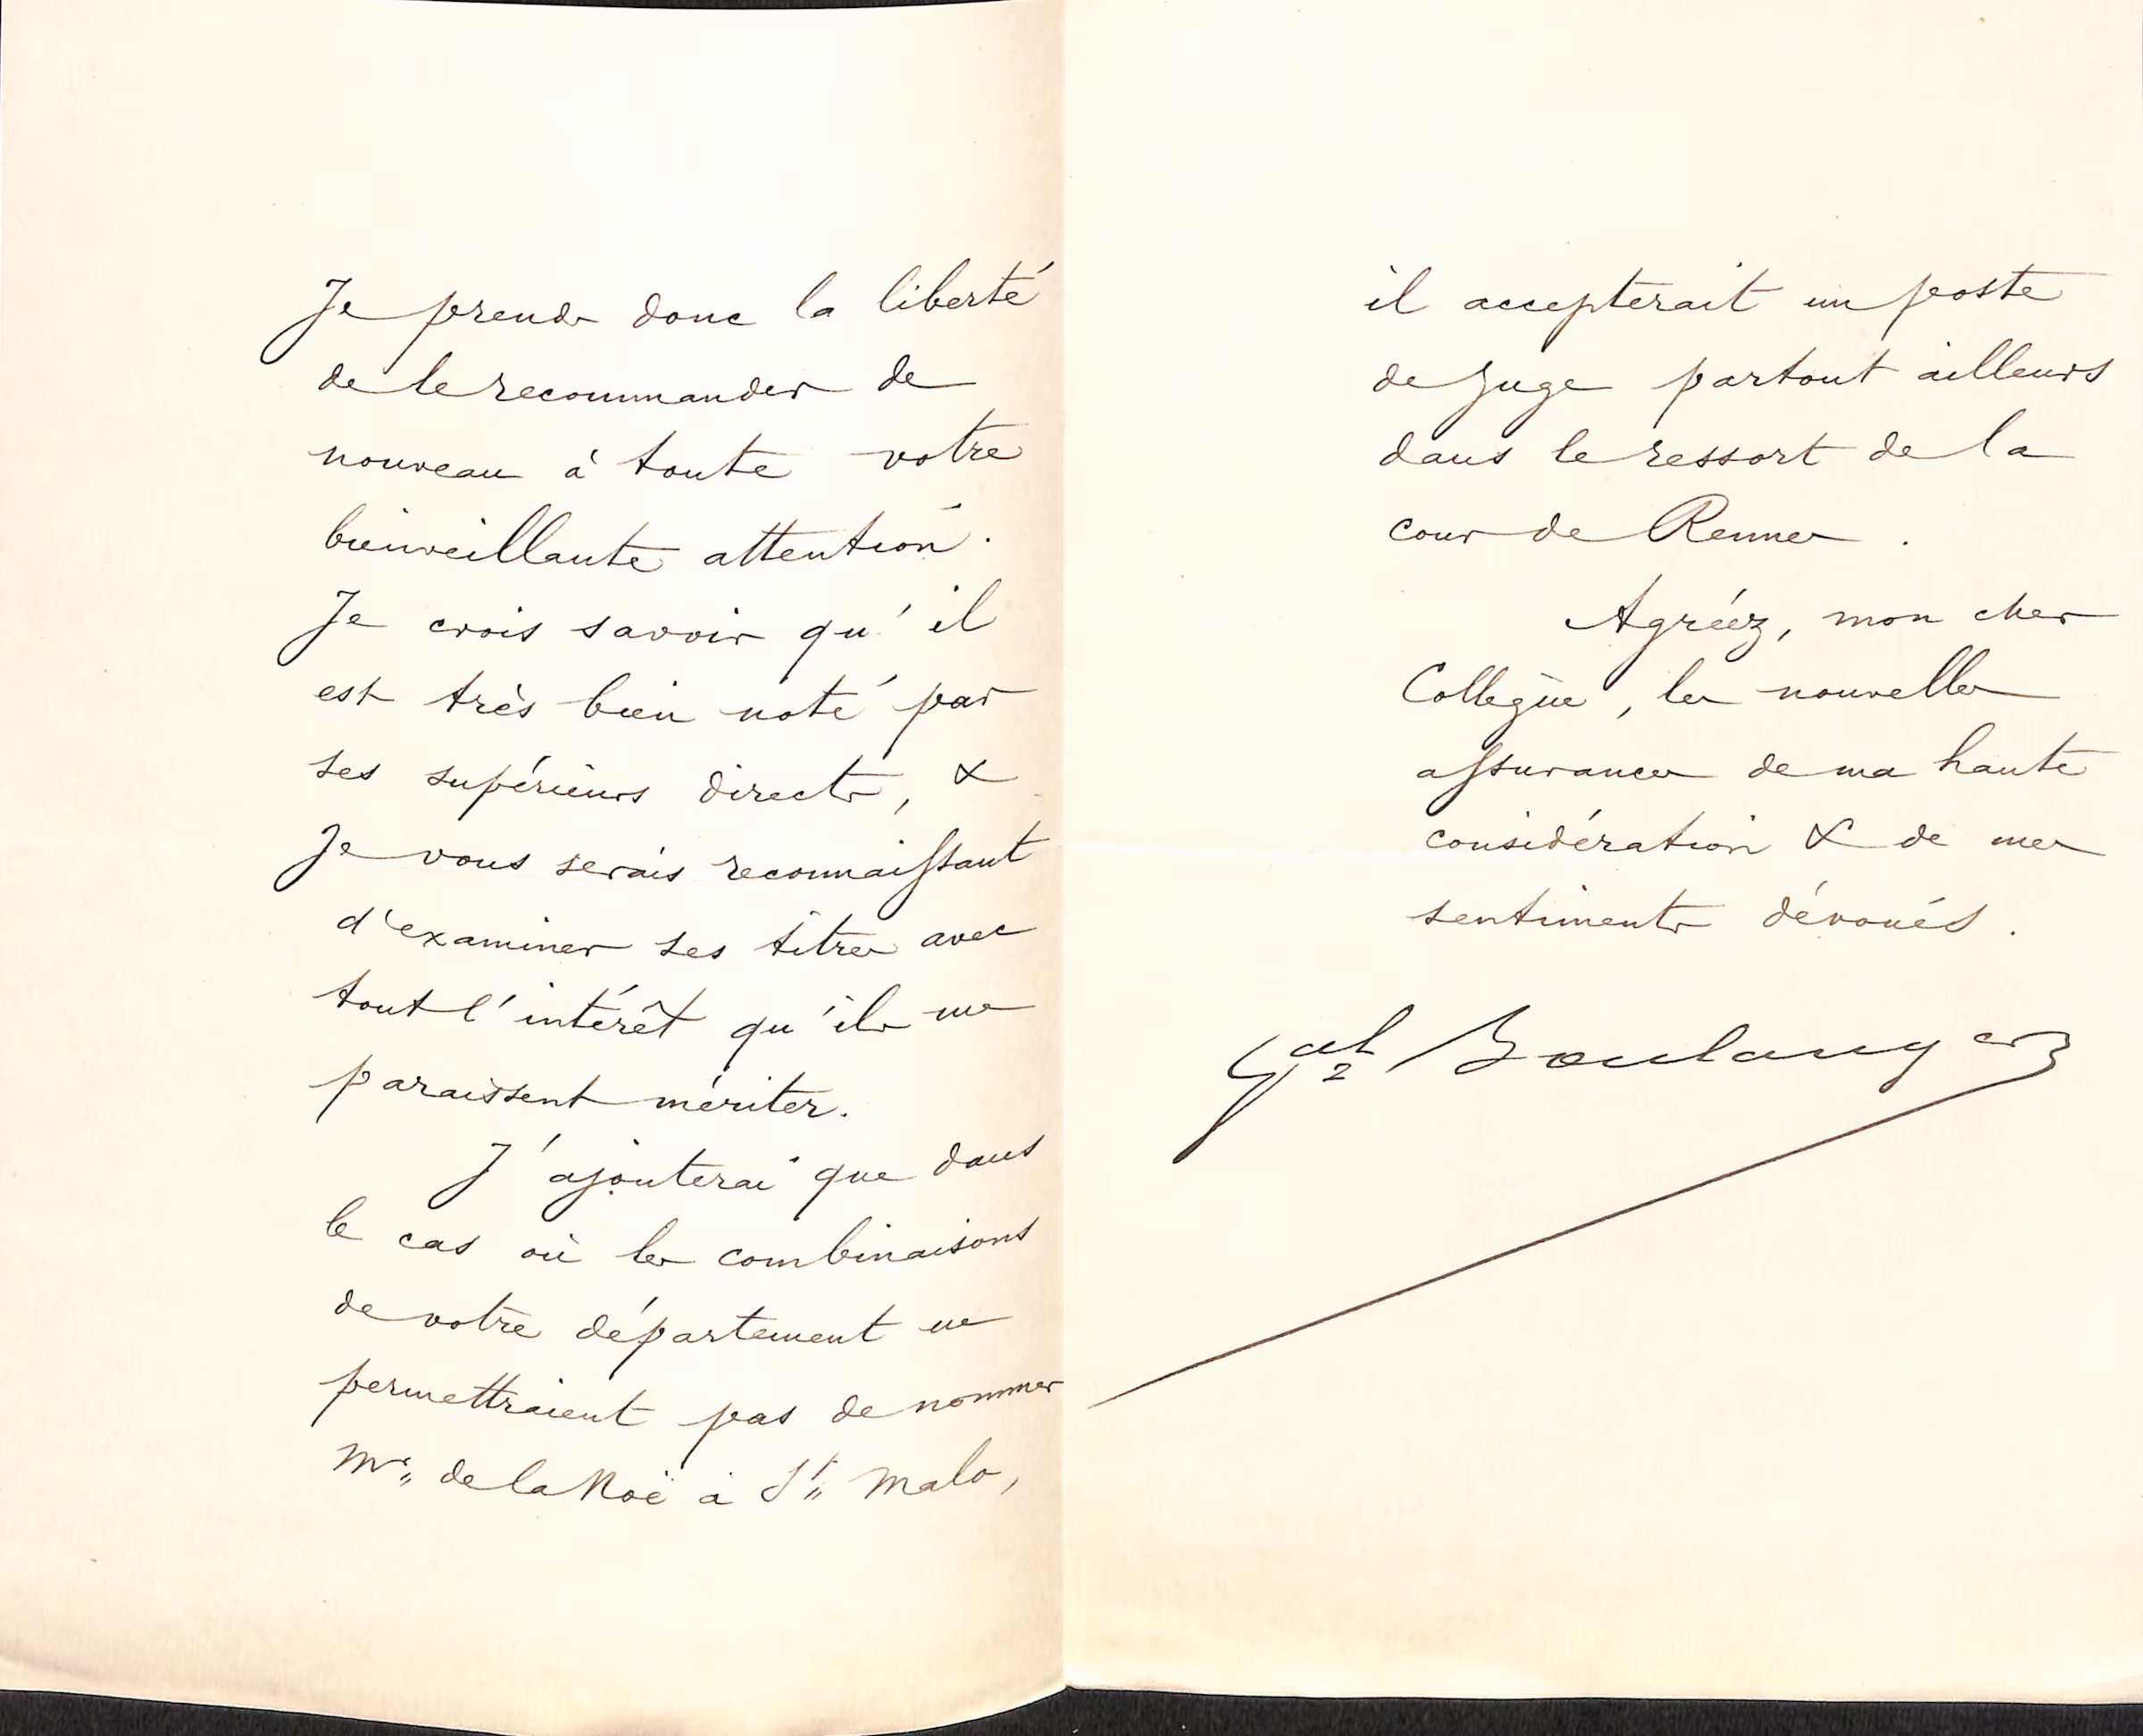 Je prends donc la liberté
de le recommander de
nouveau à toute votre
bienveillante attention.
Je crois savoir qu'il
est très bien noté par
ses supérieurs directs, &
Je vous serais reconnaissant
d'examiner ses titres avec
tout l'intérêt qu'ils me
paraissent mériter.
J'ajouterai que dans
le cas où les combinaisons
de votre département ne
permettraient pas de nommer
Mr. de la Noë à St. Malo,
il accepterait un poste
de Juge partout ailleurs
dans le ressort de la
cour de Rennes.
Agréez, mon cher
Collègue, les nouvelles
assurances de ma haute
considération & de mes
sentiments dévoués.
Gal Boulanger